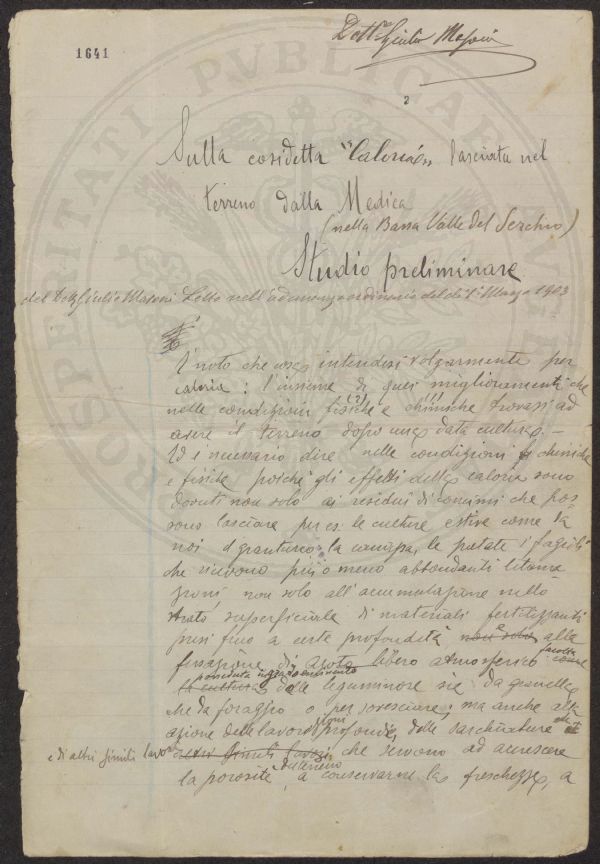 1641
Dott. Giulio Masoni
Sulla cosidetta "Caloria" lasciata nel
terreno dalla Medica
(nella Bassa Valle del Serchio)
Studio preliminare
del Dott. Giulio Masoni Letto nell'adunanza ordinaria del dì 1° Marzo 1903
È noto che cosa intendesi volgarmente per
caloria: l'insieme di quei miglioramenti che
nelle condizioni fisiche (2) e chimiche (1) trovasi ad
avere il terreno dopo una data cultura. –
Ed è necessario dire nelle condizioni chimiche
e fisiche poichè gli effetti della caloria sono
dovuti non solo ai residui di concimi che pos-
sono lasciare per es. le culture estive come da
noi il granturco, la canapa, le patate i fagioli
che ricevono più o meno abbondanti letama
zioni non solo all'accumulazione nello
strato superficiale di materiali fertilizzanti
presi fino a certe profondità non solo alla
fissazione di azoto libero atmosferico facoltà come
la cultura posseduta in grado eminente dalle leguminose sia da granella
che da foraggio o per sovescio; ma anche alla
azione delle lavorazioni profonde, delle sarchiature
e di altri simili lavori altri simili lavori che servono ad accrescere
la porosità del terreno, a conservarne la freschezza, a